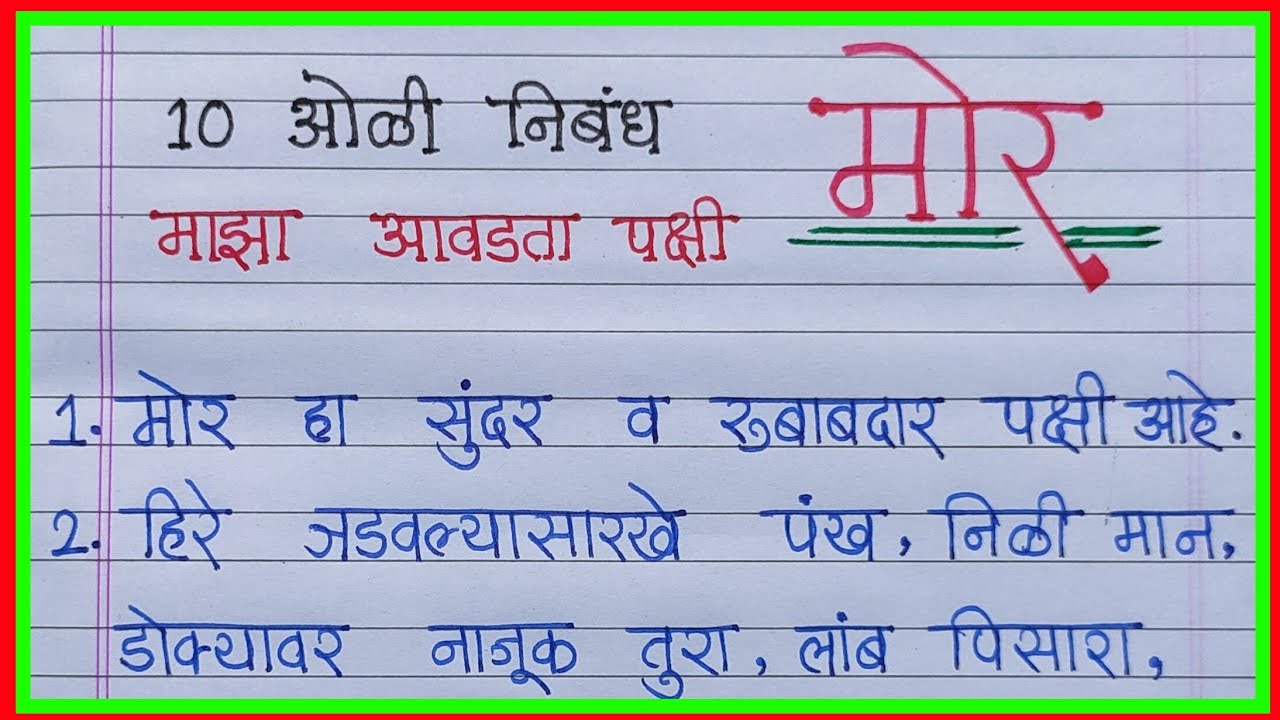 10 ओळी निबंध
मोर
माझा आवडता पक्षी
1. मोर हा सुंदर व रुबाबदार पक्षी आहे.
2. हिरे जडवल्यासारखे पंख, निळी मान,
डोक्यावर नाजूक तुरा, लांब पिसारा,